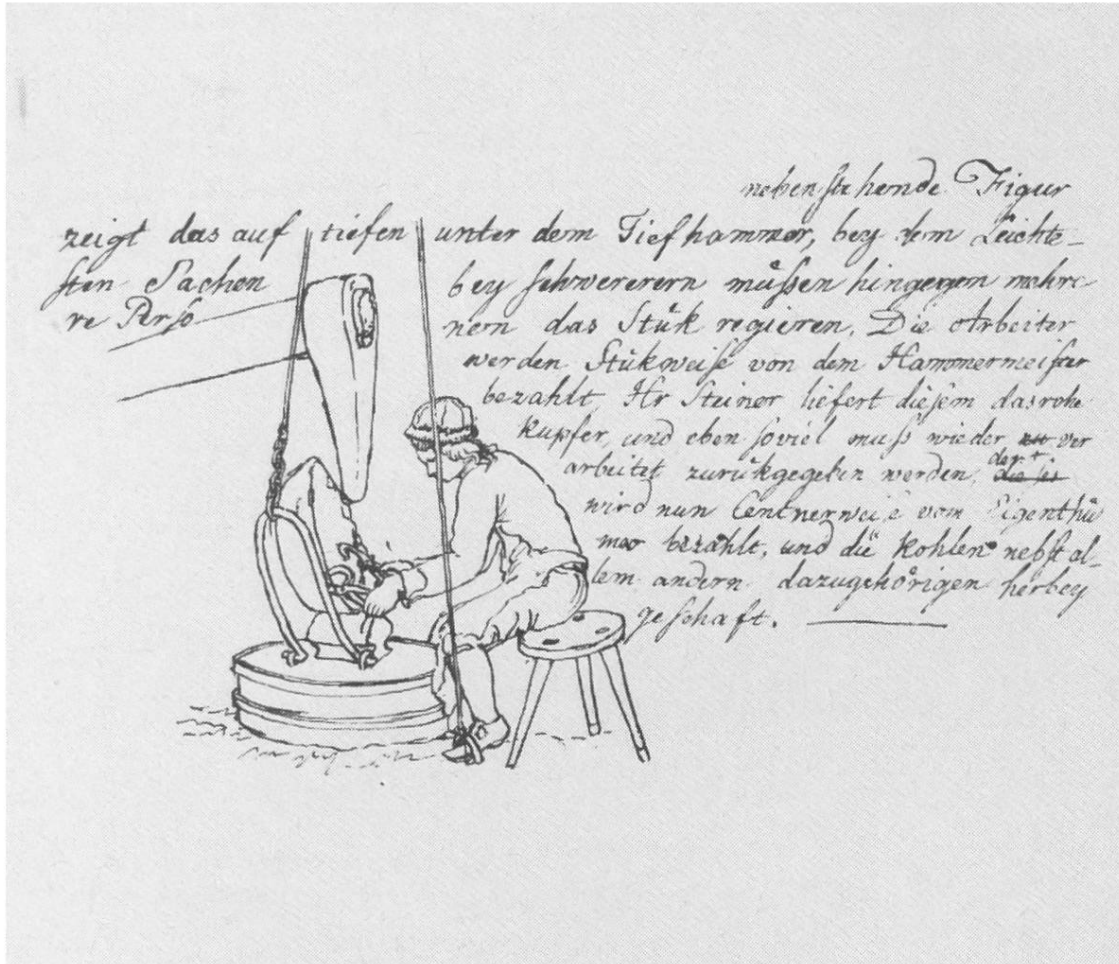 nebenstehende Figur
zeigt das auf tiefen unter dem Tiefhammer, bey dem Leichte-
sten Sachen bey schwererern müssen hingegen mehre
re Perso nen das Stük regieren. Die Arbeiter
werden Stükweise von dem Hammermeister
bezahlt, Hr Steiner liefert diesem das rohe
Kupfer, und eben soviel muss wieder ver
arbeitet zurükgegeben werden, der
wird nun Centnerweise vom Eigenthü
mer bezahlt, und die Kohlen nebst al-
lem andern dazugehörigen herbey
geschaft.